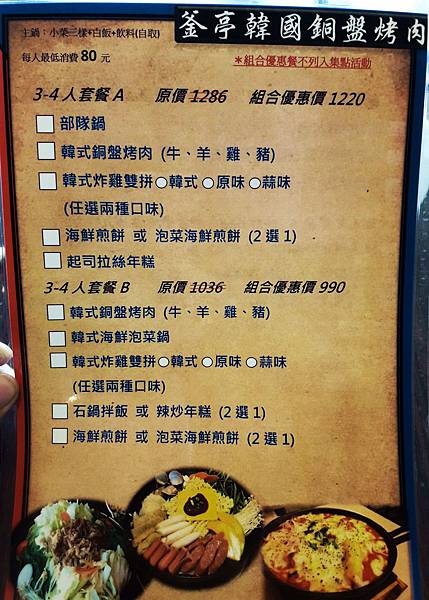 釜亭韓國銅盤烤肉
主鍋：小菜三樣+白飯+飲料(自取)
每人最低消費 80 元
＊組合優惠餐不列入集點活動
3-4 人套餐 A 原價 1286 組合優惠價 1220
部隊鍋
韓式銅盤烤肉 (牛、羊、雞、豬)
韓式炸雞雙拼○韓式○原味○蒜味
(任選兩種口味)
海鮮煎餅 或 泡菜海鮮煎餅 (2 選 1)
起司拉絲年糕
3-4 人套餐 B 原價 1036 組合優惠價 990
韓式銅盤烤肉 (牛、羊、雞、豬)
韓式海鮮泡菜鍋
韓式炸雞雙拼○韓式○原味○蒜味
(任選兩種口味)
石鍋拌飯 或 辣炒年糕 (2 選 1)
海鮮煎餅 或 泡菜海鮮煎餅 (2 選 1)